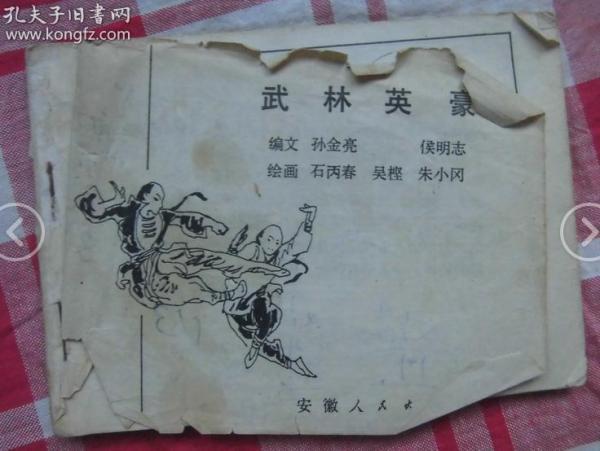 孔夫子旧书网
www.kongfz.com
武林英豪
编文 孙金亮 侯明志
绘画 石丙春 吴樫 朱小冈
安徽人民出